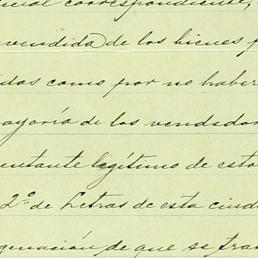 cual correspondiente,
vendida) de los bienes p
idas como por no haber
ayoría de los vendedor
entante legítimo de esta
2º de Letras de esta ciud
genación de que se tra